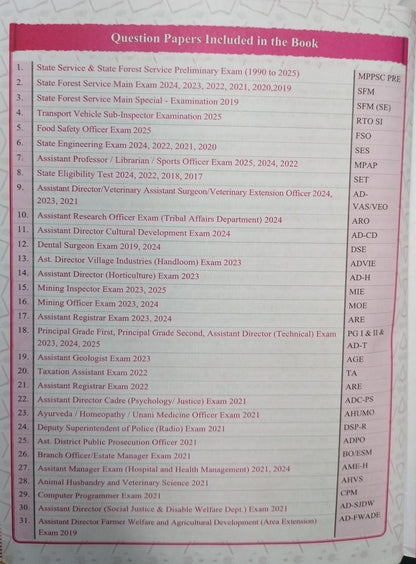 Question Papers Included in the Book
1. State Service & State Forest Service Preliminary Exam (1990 to 2025) MPPSC PRE
2. State Forest Service Main Exam 2024, 2023, 2022, 2021, 2020,2019 SFM
3. State Forest Service Main Special - Examination 2019 SFM (SE)
4. Transport Vehicle Sub-Inspector Examination 2025 RTO SI
5. Food Safety Officer Exam 2025 FSO
6. State Engineering Exam 2024, 2022, 2021, 2020 SES
7. Assistant Professor / Librarian / Sports Officer Exam 2025, 2024, 2022 MPAP
8. State Eligibility Test 2024, 2022, 2018, 2017 SET
9. Assistant Director/Veterinary Assistant Surgeon/Veterinary Extension Officer 2024, AD-
2023, 2021 VAS/VEO
10. Assistant Research Officer Exam (Tribal Affairs Department) 2024 ARO
11. Assistant Director Cultural Development Exam 2024 AD-CD
12. Dental Surgeon Exam 2019, 2024 DSE
13. Ast. Director Village Industries (Handloom) Exam 2023 ADVIE
14. Assistant Director (Horticulture) Exam 2023 AD-H
15. Mining Inspector Exam 2023, 2025 MIE
16. Mining Officer Exam 2023, 2024 MOE
17. Assistant Registrar Exam 2023, 2024 ARE
18. Principal Grade First, Principal Grade Second, Assistant Director (Technical) Exam PG I & II &
2023, 2024, 2025 AD-T
19. Assistant Geologist Exam 2023 AGE
20. Taxation Assistant Exam 2022 TA
21. Assistant Registrar Exam 2022 ARE
22. Assistant Director Cadre (Psychology/ Justice) Exam 2021 ADC-PS
23. Ayurveda / Homeopathy / Unani Medicine Officer Exam 2021 AHUMO
24. Deputy Superintendent of Police (Radio) Exam 2021 DSP-R
25. Ast. District Public Prosecution Officer 2021 ADPO
26. Branch Officer/Estate Manager Exam 2021 BO/ESM
27. Assitant Manager Exam (Hospital and Health Management) 2021, 2024 AME-H
28. Animal Husbandry and Veterinary Science 2021 AHVS
29. Computer Programmer Exam 2021 CPM
30. Assistant Director (Social Justice & Disable Welfare Dept.) Exam 2021 AD-SJDW
31. Assistant Director Farmer Welfare and Agricultural Development (Area Extension) AD-FWADE
Exam 2019